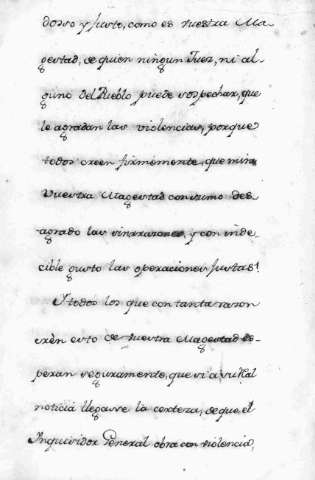 doso y Justo, como es Vuestra Ma-
gestad, de quien ningun Juez, ni al-
guno del Pueblo puede sospechar, que
le agradan las violencias, porque
todos creen firmemente, que mira
Vuestra Magestad con sumo des-
agrado las sinrazones, y con inde-
cible gusto las operaciones Justas.
Y todos los que con tanta razon
creèn esto de Vuestra Magestad es-
peran seguramente, que si a su Real
noticia llegasse la certeza, de que el
Inquisidor General obra con violencia,